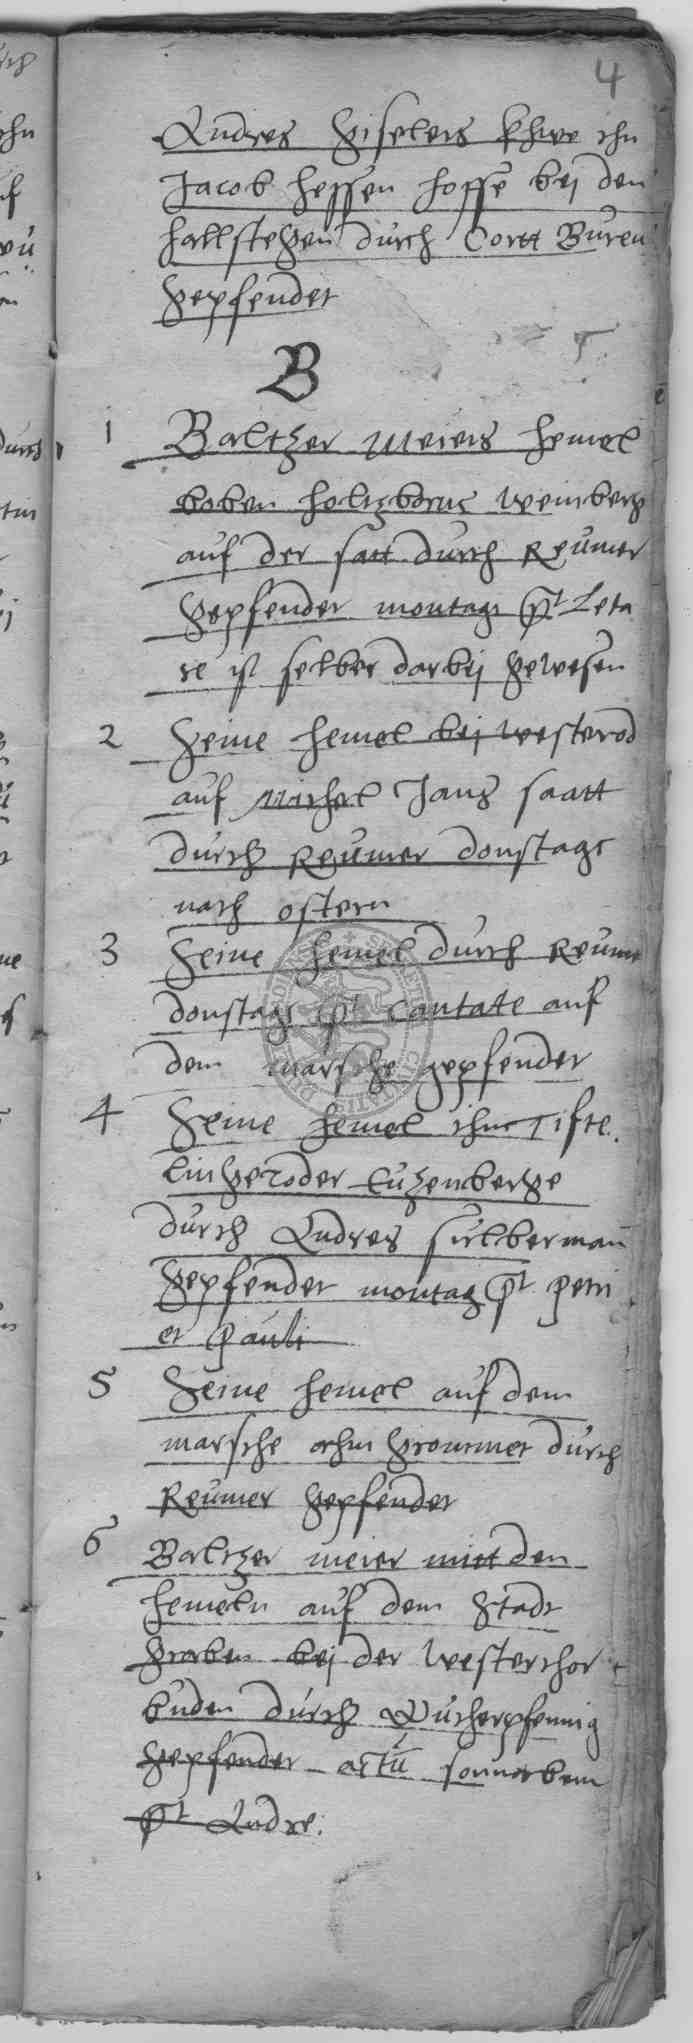 4
Andres Giselers khwe ihn
Jacob Hessen hoffe bej den
hallstegen durch Cortt Buren
gepfendet
B
1 Baltzer Meiers hemel
boben holtzborns Weinberg
auf der satt durch Reumer
gepfendet montags pt Leta
re ist selber darbej gewesen
2 Seine hemel bej westerod
auf Michel Jans saatt
durch Reumer donstags
nach ostern
3 Seine hemel durch Reumer
donstags pt Cantate auf
dem marsche gepfendet
4 Seine hemel ihm Tifte.
lingeroder Eutzenberge
durch Andres silberman
gepfendet montag pt petri
et pauli
5 Seine hemel auf dem
marsche ahm grommet durch
Reumer gepfendet
6 Baltzer meier mitt den
hemeln auf dem Stadt
graben bej der westerthor
buden durch Wucherpfennig
gepfendet actu sonnabent
pt Andre: